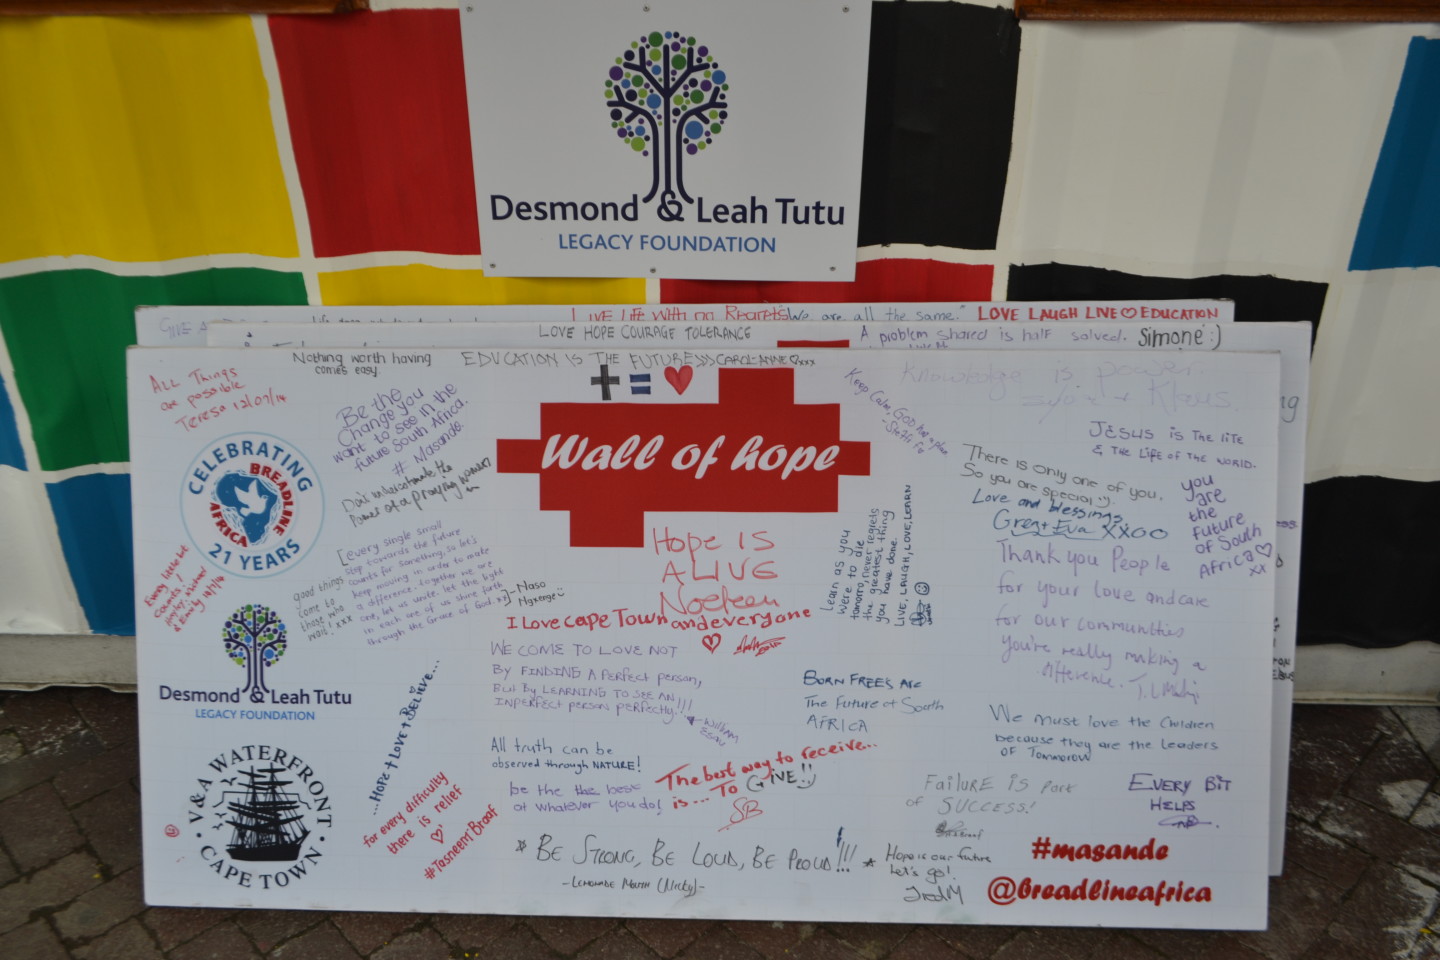 Desmond & Leah Tutu
LEGACY FOUNDATION
Live Life with no Regrets
We are all the same.
LOVE LAUGH LIVE♡EDUCATION
LOVE HOPE COURAGE TOLERANCE
A problem shared is half solved. Simone :)
Nothing worth having
comes easy.
EDUCATION IS THE FUTURE>>>CAROL-ANNE♡xxx
+=♥
Wall of hope
ALL Things
are possible
Teresa 12/07/14
Be the
Change you
want to see in the
future South Africa.
# Masande.
Don't underestimate the
Power of a praying woman
CELEBRATING
BREADLINE
AFRICA
21 YEARS
Every little bit
counts!
& Emily 12/7/14
good things
come to
those who
wait! xxx
[every single small
step towards the future
counts for something. So let's
keep moving in order to make
a difference. together we are
one, let us unite. let the light
in each one of us shine forth
through the Grace of God. xx]
- Naso
Mgxenge
Desmond & Leah Tutu
LEGACY FOUNDATION
V&A WATERFRONT
CAPE TOWN
...HOPE + LOVE + BELIEVE...
for every difficulty
there is relief
#Tasneem Braaf
Hope is
ALIVE
Noeleen
I Love cape Town and everyone
WE COME TO LOVE NOT
BY FINDING A PERFECT PERSON,
BUT BY LEARNING TO SEE AN
INPERFECT PERSON PERFECTLY!!!
William
Esau
All truth can be
observed through NATURE!
be the the best
at whatever you do!
The best way to receive...
is... TO GIVE!!
SB
* BE STRONG, BE LOUD, BE PROUD!!! *
- LEMONADE MOUTH (Nicky) -
Keep Calm, GOD has a plan
Learn as you
were to die
tomorrow, never regrets
the greatest thing
you have done.
LIVE, LAUGH, LOVE, LEARN
BORN FREES ARE
The Future of South
AFRICA
Knowledge is power.
Klaus.
JESUS is the life
& THE LIFE OF THE WORLD.
There is only one of you.
So you are special :).
Love and blessings
Greg + Eva XXOO
you
are
the
future
of South
Africa♡
xx
Thank you People
for your love and care
for our communities
you're really making a
difference.
We must love the Children
because they are the Leaders
OF Tommorow
Failure is Part
of SUCCESS!
EVERY BIT
HELPS
Hope is our future
Let's go!
#masande
@breadlineafrica